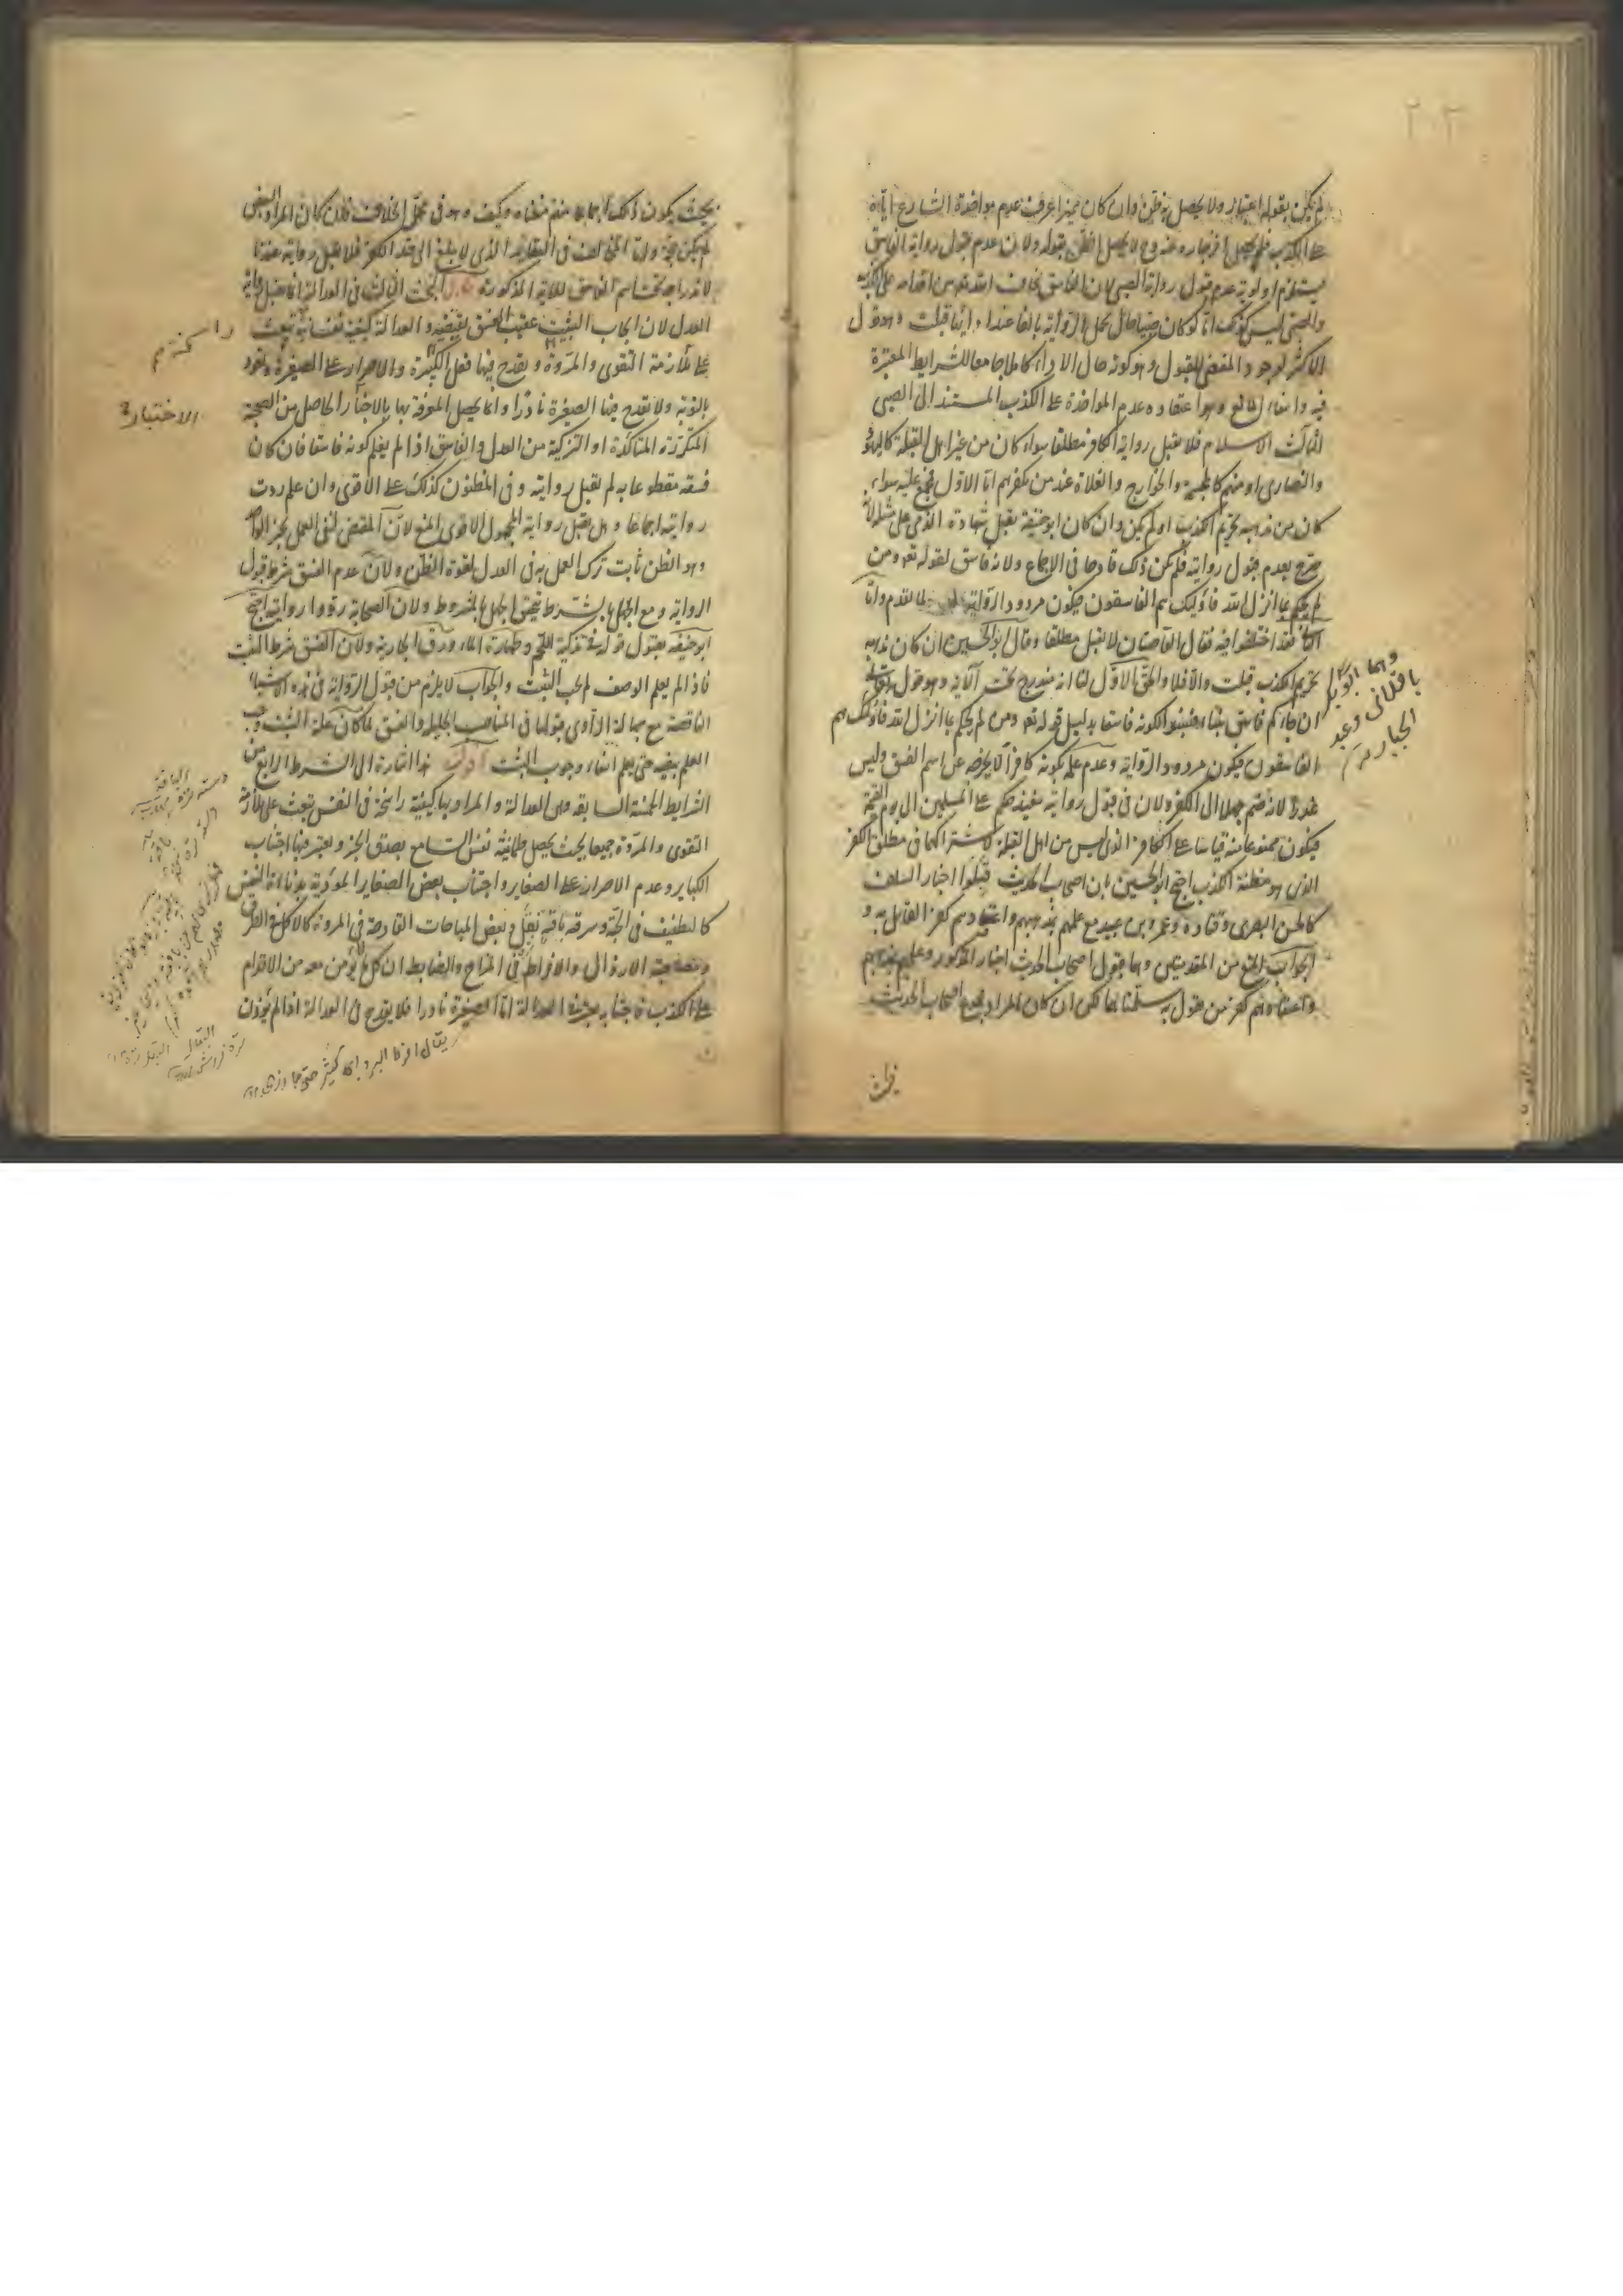 ٢٠٣
لم يكن بقوله اعتبار ولا يحصل به ظن وان كان مميزا عرف عدم مواخذة الشارع اياه
على الكذب فلم يحصل انزجاره عنه وح لا يحصل الظن بقوله ولان عدم قبول رواية الفاسق
يستلزم اولوية عدم قبول رواية الصبي لان الفاسق يخاف الله تع من اقدامه على الكذب
والصبي ليس كذلك اما لو كان صبيا حال تحمل الرواية بالغا عند ادائها قبلت وهو قول
الاكثر لوجود المقتضى للقبول وهو كونه حال الاداء كاملا جامعا للشرايط المعتبرة
فيه وانتفاء المانع وهو اعتقاده عدم المواخذة على الكذب المستند الى الصبى
الثالث الاسلام فلا تقبل رواية الكافر مطلقا سواء كان من غير اهل القبلة كاليهود
والنصارى او منهم كالمجسمة والخوارج والغلاة عند من يكفرهم اما الاول فمجمع عليه سواء
كان من مذهبه تحريم الكذب او لم يكن وان كان ابو حنيفة يقبل شهادة الذمى على مثله لانه
صرح بعدم قبول روايته فلم يكن ذلك قادحا فى الاجماع ولانه فاسق لقوله تع ومن
لم يحكم بما انزل الله فاولئك هم الفاسقون فيكون مردود الرواية لما تقدم واما
الثانى فقد اختلفوا فيه فقال القاضيان لا تقبل مطلقا وقال ابو الحسين ان كان مذهبه
تحريم الكذب قبلت والا فلا والحق الاول لنا انه مندرج تحت الآية وهو قوله تع
ان جاءكم فاسق بنباء فتبينوا لكونه فاسقا بدليل قوله تع ومن لم يحكم بما انزل الله فاولئك هم
الفاسقون فيكون مردود الرواية وعدم علمه بكونه كافرا لا يخرجه عن اسم الفسق وليس
عذرا لانه ضم جهلا الى الكفر ولان فى قبول روايته تنفيذ حكمه على المسلمين الى يوم القيمة
فيكون ممنوعا منه قياسا على الكافر الذى ليس من اهل القبلة لاشتراكهما فى مطلق الكفر
الذى هو مظنة الكذب احتج ابو الحسين بان اصحاب الحديث قبلوا اخبار السلف
كالحسن البصرى وقتادة وعمرو بن عبيد مع علمهم بمذهبهم واعتقادهم كفر القائل به و
الجواب المنع من المقدمتين وهما قبول اصحاب الحديث اخبار المذكور وعلمهم بمذهبهم
واعتقادهم كفر من يقول به سلمنا هما لكن ان كان المراد جميع اصحاب الحديث
وهما ابو بكر
باقلانى وعبد
الجبار
بحيث
بحيث يكون ذلك اجماعا منهم منعناه وكيف وهو فى محل الخلاف وان كان المراد البعض
لم يكن حجة واما المخالف فى العقايد الذى لا يبلغ الى حد الكفر فلا تقبل روايته عندنا
لاندراجه تحت اسم الفاسق للاية المذكورة قال البحث الثالث فى العدالة انما تقبل رواية
العدل لان ايجاب التثبت عقيب الفسق يقتضيه والعدالة كيفية نفسانية تبعث
على ملازمة التقوى والمروة ويقدح فيها فعل الكبيرة والاصرار على الصغيرة وتعود
بالتوبة ولا تقدح فيها الصغيرة نادرا وانما يحصل المعرفة بها بالاختبار الحاصل من الصحبة
المتكررة المتاكدة او التزكية من العدل والفاسق اذا لم يعلم كونه فاسقا فان كان
فسقه مقطوعا به لم تقبل روايته وفى المظنون كذلك على الاقوى وان علم ردت
روايته اجماعا وهل تقبل رواية المجهول الاقوى المنع لان المقتضى لنفى العمل بخبر الواحد
وهو الظن ثابت ترك العمل به فى العدل لقوة الظن ولان عدم الفسق شرط قبول
الرواية ومع الجهل بالشرط يتحقق الجهل بالمشروط ولان الصحابة ردوا روايته احتج
ابو حنيفة بقبول قوله فى تذكية اللحم وطهارة الماء ورق الجارية ولان الفسق شرط التثبت
فاذا لم يعلم الوصف لم يجب التثبت والجواب لا يلزم من قبول الرواية فى هذه الاشياء
الناقصة مع جهالة الراوى قبولها فى المناصب الجليلة والفسق لما كان علة التثبت وجب
العلم بنفيه حتى يعلم انتفاء وجوب التثبت اقول هذا اشارة الى الشرط الرابع من
الشرايط الخمسة السابقة وهى العدالة والمراد بها كيفية راسخة فى النفس تبعث على ملازمة
التقوى والمروة جميعا بحيث يحصل طمانينة نفس السامع بصدق الخبر ويعتبر فيها اجتناب
الكباير وعدم الاصرار على الصغاير واجتناب بعض الصغاير المؤدية بدناءة النفس
كالتطفيف فى الحبة وسرقة باقة بقل وبعض المباحات القادحة فى المروة كالاكل فى الطرق
ومصاحبة الارذال والافراط فى المزاح والضابط ان كل ما لا يؤمن معه من الاقدام
على الكذب فاجتنابه يعتبر فى العدالة اما الصغيرة نادرا فلا يقدح فى العدالة اذا لم يؤذن
راسخة
الاختبار
يقال افرط البرد اى كثير حتى جاوز